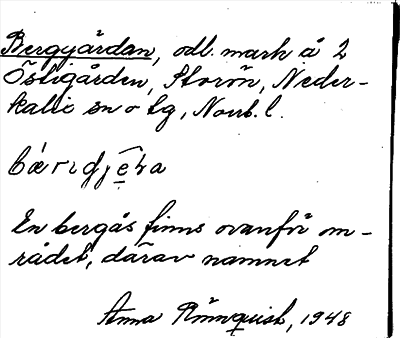 Bergyårdan, odl. mark å 2
Östigården, Storön, Neder-
kalix sn o tg, Norrb. l.
En bergås finns ovanför om-
rådet, därav namnet
Anna Rönnquist, 1948